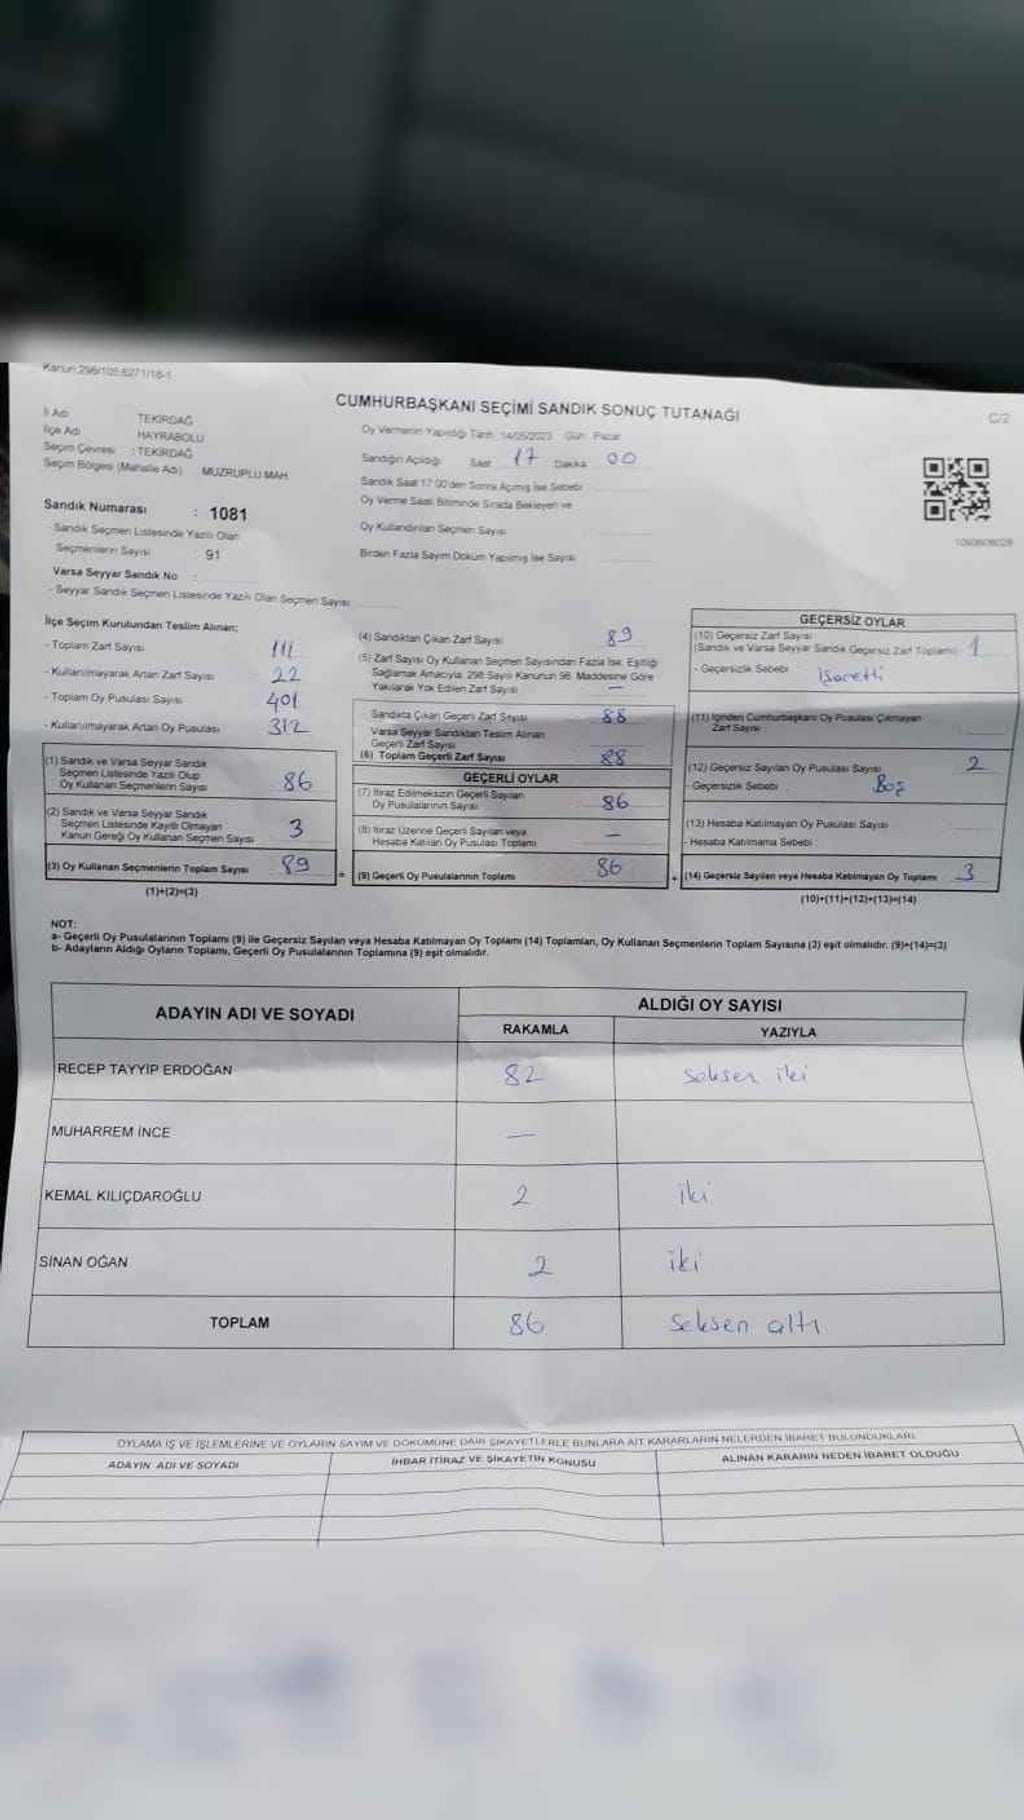 Kanun:296/105,6271/18-1
CUMHURBAŞKANI SEÇİMİ SANDIK SONUÇ TUTANAĞI
C/2
İl Adı TEKİRDAĞ
İlçe Adı HAYRABOLU
Seçim Çevresi : TEKİRDAĞ
Seçim Bölgesi (Mahalle Adı) MUZRUPLU MAH.
Sandık Numarası : 1081
- Sandık Seçmen Listesinde Yazılı Olan
Seçmenlerin Sayısı 91
Varsa Seyyar Sandık No :
- Seyyar Sandık Seçmen Listesinde Yazılı Olan Seçmen Sayısı
Oy Vermenin Yapıldığı Tarih 14/05/2023 Gün Pazar
Sandığın Açıldığı Saat 17 Dakika 00
Sandık Saat 17.00'den Sonra Açılmış İse Sebebi
Oy Verme Saati Bitiminde Sırada Bekleyen ve
Oy Kullandırılan Seçmen Sayısı
Birden Fazla Sayım Döküm Yapılmış İse Sayısı
İlçe Seçim Kurulundan Teslim Alınan;
- Toplam Zarf Sayısı 111
- Kullanılmayarak Artan Zarf Sayısı 22
- Toplam Oy Pusulası Sayısı 401
- Kullanılmayarak Artan Oy Pusulası 312
(1) Sandık ve Varsa Seyyar Sandık
Seçmen Listesinde Yazılı Olup
Oy Kullanan Seçmenlerin Sayısı 86
(2) Sandık ve Varsa Seyyar Sandık
Seçmen Listesinde Kayıtlı Olmayan
Kanun Gereği Oy Kullanan Seçmen Sayısı 3
(3) Oy Kullanan Seçmenlerin Toplam Sayısı 89
(1)+(2)=(3)
(4) Sandıktan Çıkan Zarf Sayısı 89
(5) Zarf Sayısı Oy Kullanan Seçmen Sayısından Fazla İse, Eşitliği
Sağlamak Amacıyla, 298 Sayılı Kanunun 98. Maddesine Göre
Yakılarak Yok Edilen Zarf Sayısı —
Sandıkta Çıkan Geçerli Zarf Sayısı 88
Varsa Seyyar Sandıktan Teslim Alınan
Geçerli Zarf Sayısı
(6) Toplam Geçerli Zarf Sayısı 88
GEÇERLİ OYLAR
(7) İtiraz Edilmeksizin Geçerli Sayılan
Oy Pusulalarının Sayısı 86
(8) İtiraz Üzerine Geçerli Sayılan veya
Hesaba Katılan Oy Pusulası Toplamı —
(9) Geçerli Oy Pusulalarının Toplamı 86
GEÇERSİZ OYLAR
(10) Geçersiz Zarf Sayısı
(Sandık ve Varsa Seyyar Sandık Geçersiz Zarf Toplamı) 1
- Geçersizlik Sebebi işaretli
(11) İçinden Cumhurbaşkanı Oy Pusulası Çıkmayan
Zarf Sayısı
(12) Geçersiz Sayılan Oy Pusulası Sayısı 2
- Geçersizlik Sebebi : Boş
(13) Hesaba Katılmayan Oy Pusulası Sayısı
- Hesaba Katılmama Sebebi :
(14) Geçersiz Sayılan veya Hesaba Katılmayan Oy Toplamı 3
(10)+(11)+(12)+(13)=(14)
NOT:
a- Geçerli Oy Pusulalarının Toplamı (9) ile Geçersiz Sayılan veya Hesaba Katılmayan Oy Toplamı (14) Toplamları, Oy Kullanan Seçmenlerin Toplam Sayısına (3) eşit olmalıdır. (9)+(14)=(3)
b- Adayların Aldığı Oyların Toplamı, Geçerli Oy Pusulalarının Toplamına (9) eşit olmalıdır.
ADAYIN ADI VE SOYADI
ALDIĞI OY SAYISI
RAKAMLA YAZIYLA
RECEP TAYYİP ERDOĞAN 82 seksen iki
MUHARREM İNCE —
KEMAL KILIÇDAROĞLU 2 iki
SİNAN OĞAN 2 iki
TOPLAM 86 seksen altı
OYLAMA İŞ VE İŞLEMLERİNE VE OYLARIN SAYIM VE DÖKÜMÜNE DAİR ŞİKAYETLERLE BUNLARA AİT KARARLARIN NELERDEN İBARET BULUNDUKLARI
ADAYIN ADI VE SOYADI İHBAR İTİRAZ VE ŞİKAYETİN KONUSU ALINAN KARARIN NEDEN İBARET OLDUĞU